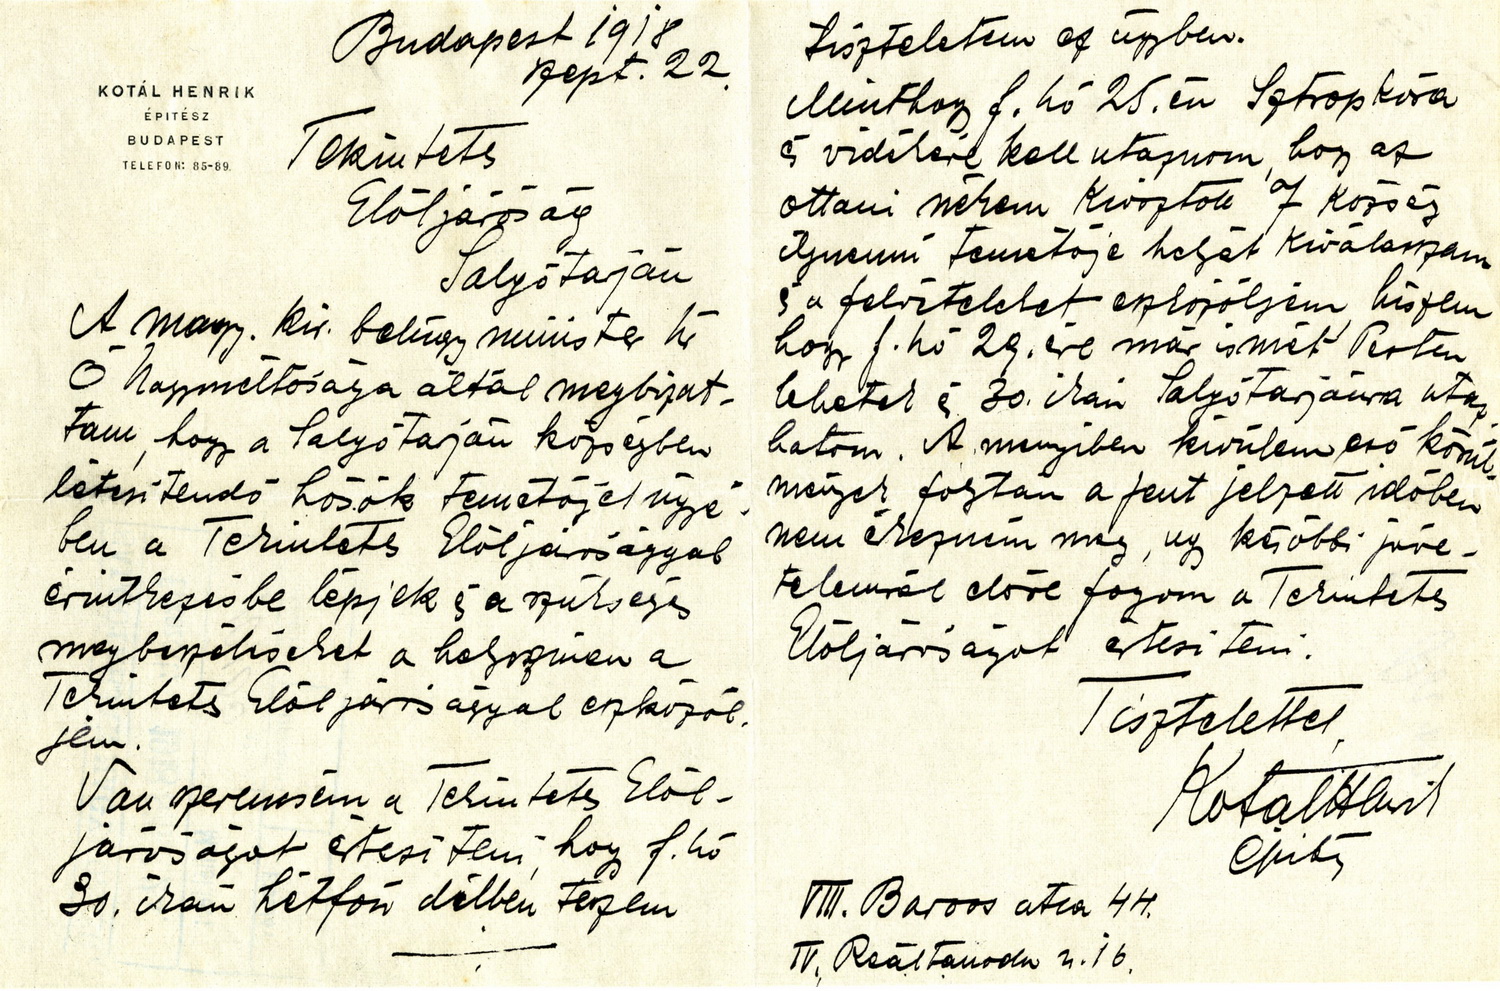 Budapest 1918
szept. 22.
KOTÁL HENRIK
ÉPITÉSZ
BUDAPEST
TELEFON: 85-89.
Tekintetes
Elöljáróság
Salgótarján
A magy. kir. belügyminister úr
Ő Nagyméltósága által megbizat-
tam, hogy a Salgótarján községben
létesitendő hősök temetőjel ügyé-
ben a Tekintetes Elöljárósággal
érintkezésbe lépjek és a szükséges
megbeszéléseket a helyszinen a
Tekintetes Elöljárósággal eszközöl-
jem.
Van szerencsém a Tekintetes Elöl-
járóságot értesiteni, hogy f. hó
30. ikán hétfőn délben teszem
tiszteletem az ügyben.
Minthogy f. hó 25. én Sztropkóra
és vidékére kell utaznom, hogy az
ottani nékem kiosztott 7 község
ilynemü temetője helyét kiválasszam
és a felvételeket eszközöljem, hiszem
hogy f. hó 29. ére már ismét Pesten
lehetek és 30. ikán Salgótarjánra utaz-
hatom. A menyiben kivülem eső körül-
mények folytán a fent jelzett időben
nem érkezném meg, ugy későbbi jöve-
telemről előre fogom a Tekintetes
Elöljáróságot értesiteni.
Tisztelettel,
Kotál Henrik
épitész
VIII. Baross utca 44.
IV. Reáltanoda u. 16.